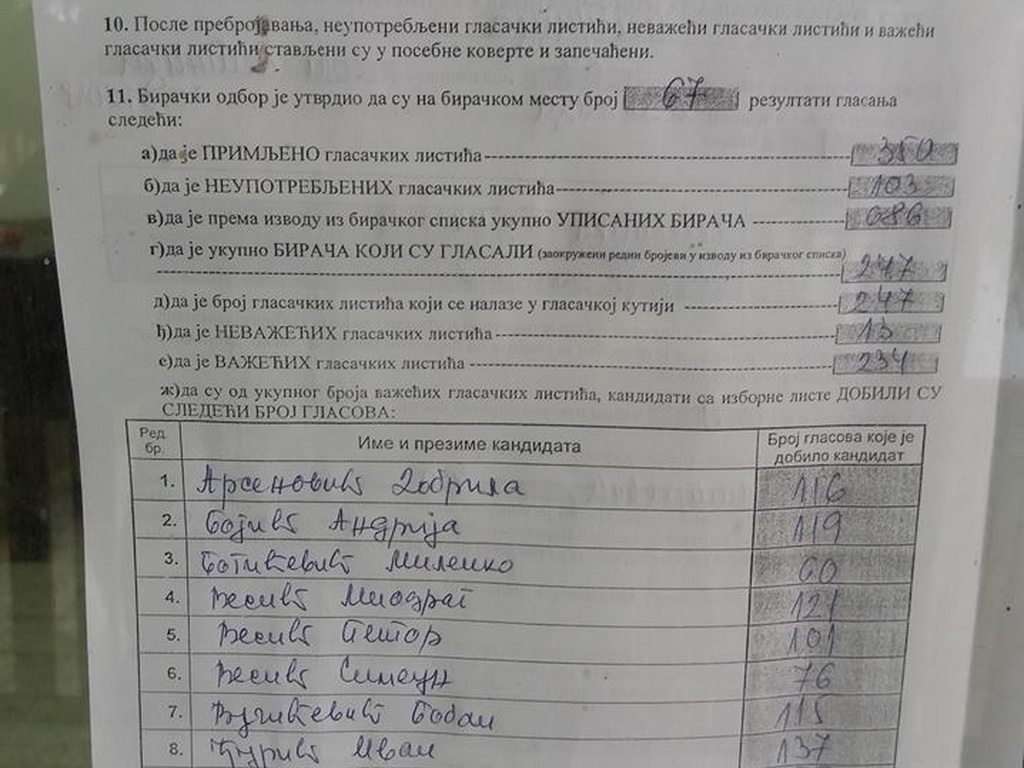 10. После пребројавања, неупотребљени гласачки листићи, неважећи гласачки листићи и важећи
гласачки листићи стављени су у посебне коверте и запечаћени.
11. Бирачки одбор је утврдио да су на бирачком месту број 67 резултати гласања
следећи:
а)да је ПРИМЉЕНО гласачких листића 350
б)да је НЕУПОТРЕБЉЕНИХ гласачких листића 103
в)да је према изводу из бирачког списка укупно УПИСАНИХ БИРАЧА 686
г)да је укупно БИРАЧА КОЈИ СУ ГЛАСАЛИ (заокружени редни бројеви у изводу из бирачког списка)
247
д)да је број гласачких листића који се налазе у гласачкој кутији 247
ђ)да је НЕВАЖЕЋИХ гласачких листића 13
е)да је ВАЖЕЋИХ гласачких листића 234
ж)да су од укупног броја важећих гласачких листића, кандидати са изборне листе ДОБИЛИ СУ
СЛЕДЕЋИ БРОЈ ГЛАСОВА:
Ред. бр. Име и презиме кандидата Број гласова које је добило кандидат
1. Арсеновић Добрила 116
2. Бојић Андрија 119
3. Ботићевић Миленко 60
4. Весић Миодраг 121
5. Весић Петар 101
6. Весић Симеун 76
7. Вујичевић Бобан 115
8. Ђурић Иван 137